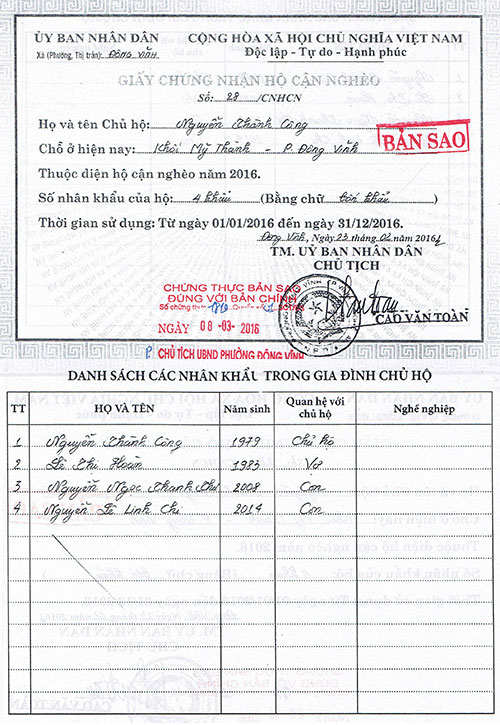 ỦY BAN NHÂN DÂN
CỘNG HÒA XÃ HỘI CHỦ NGHĨA VIỆT NAM
Xã (Phường, Thị trấn): Đông Vĩnh
Độc lập - Tự do - Hạnh phúc
GIẤY CHỨNG NHẬN HỘ CẬN NGHÈO
Số: 28 /CNHCN
Họ và tên Chủ hộ: Nguyễn Thành Công
BẢN SAO
Chỗ ở hiện nay: Khối Mỹ Thành - P. Đông Vĩnh
Thuộc diện hộ cận nghèo năm 2016.
Số nhân khẩu của hộ: 4 khẩu (Bằng chữ bốn khẩu)
Thời gian sử dụng: Từ ngày 01/01/2016 đến ngày 31/12/2016.
Đông Vĩnh, Ngày 23 tháng 02 năm 2016
TM. ỦY BAN NHÂN DÂN
CHỦ TỊCH
CHỨNG THỰC BẢN SAO
ĐÚNG VỚI BẢN CHÍNH
Số chứng thực
CAO VĂN TOÀN
NGÀY 08 -03- 2016
P. CHỦ TỊCH UBND PHƯỜNG ĐÔNG VĨNH
DANH SÁCH CÁC NHÂN KHẨU TRONG GIA ĐÌNH CHỦ HỘ
TT HỌ VÀ TÊN Năm sinh Quan hệ với chủ hộ Nghề nghiệp
1 Nguyễn Thành Công 1979 Chủ hộ
2 Lê Thị Hoàn 1983 Vợ
3 Nguyễn Ngọc Thanh Thư 2008 Con
4 Nguyễn Lê Linh Chi 2014 Con